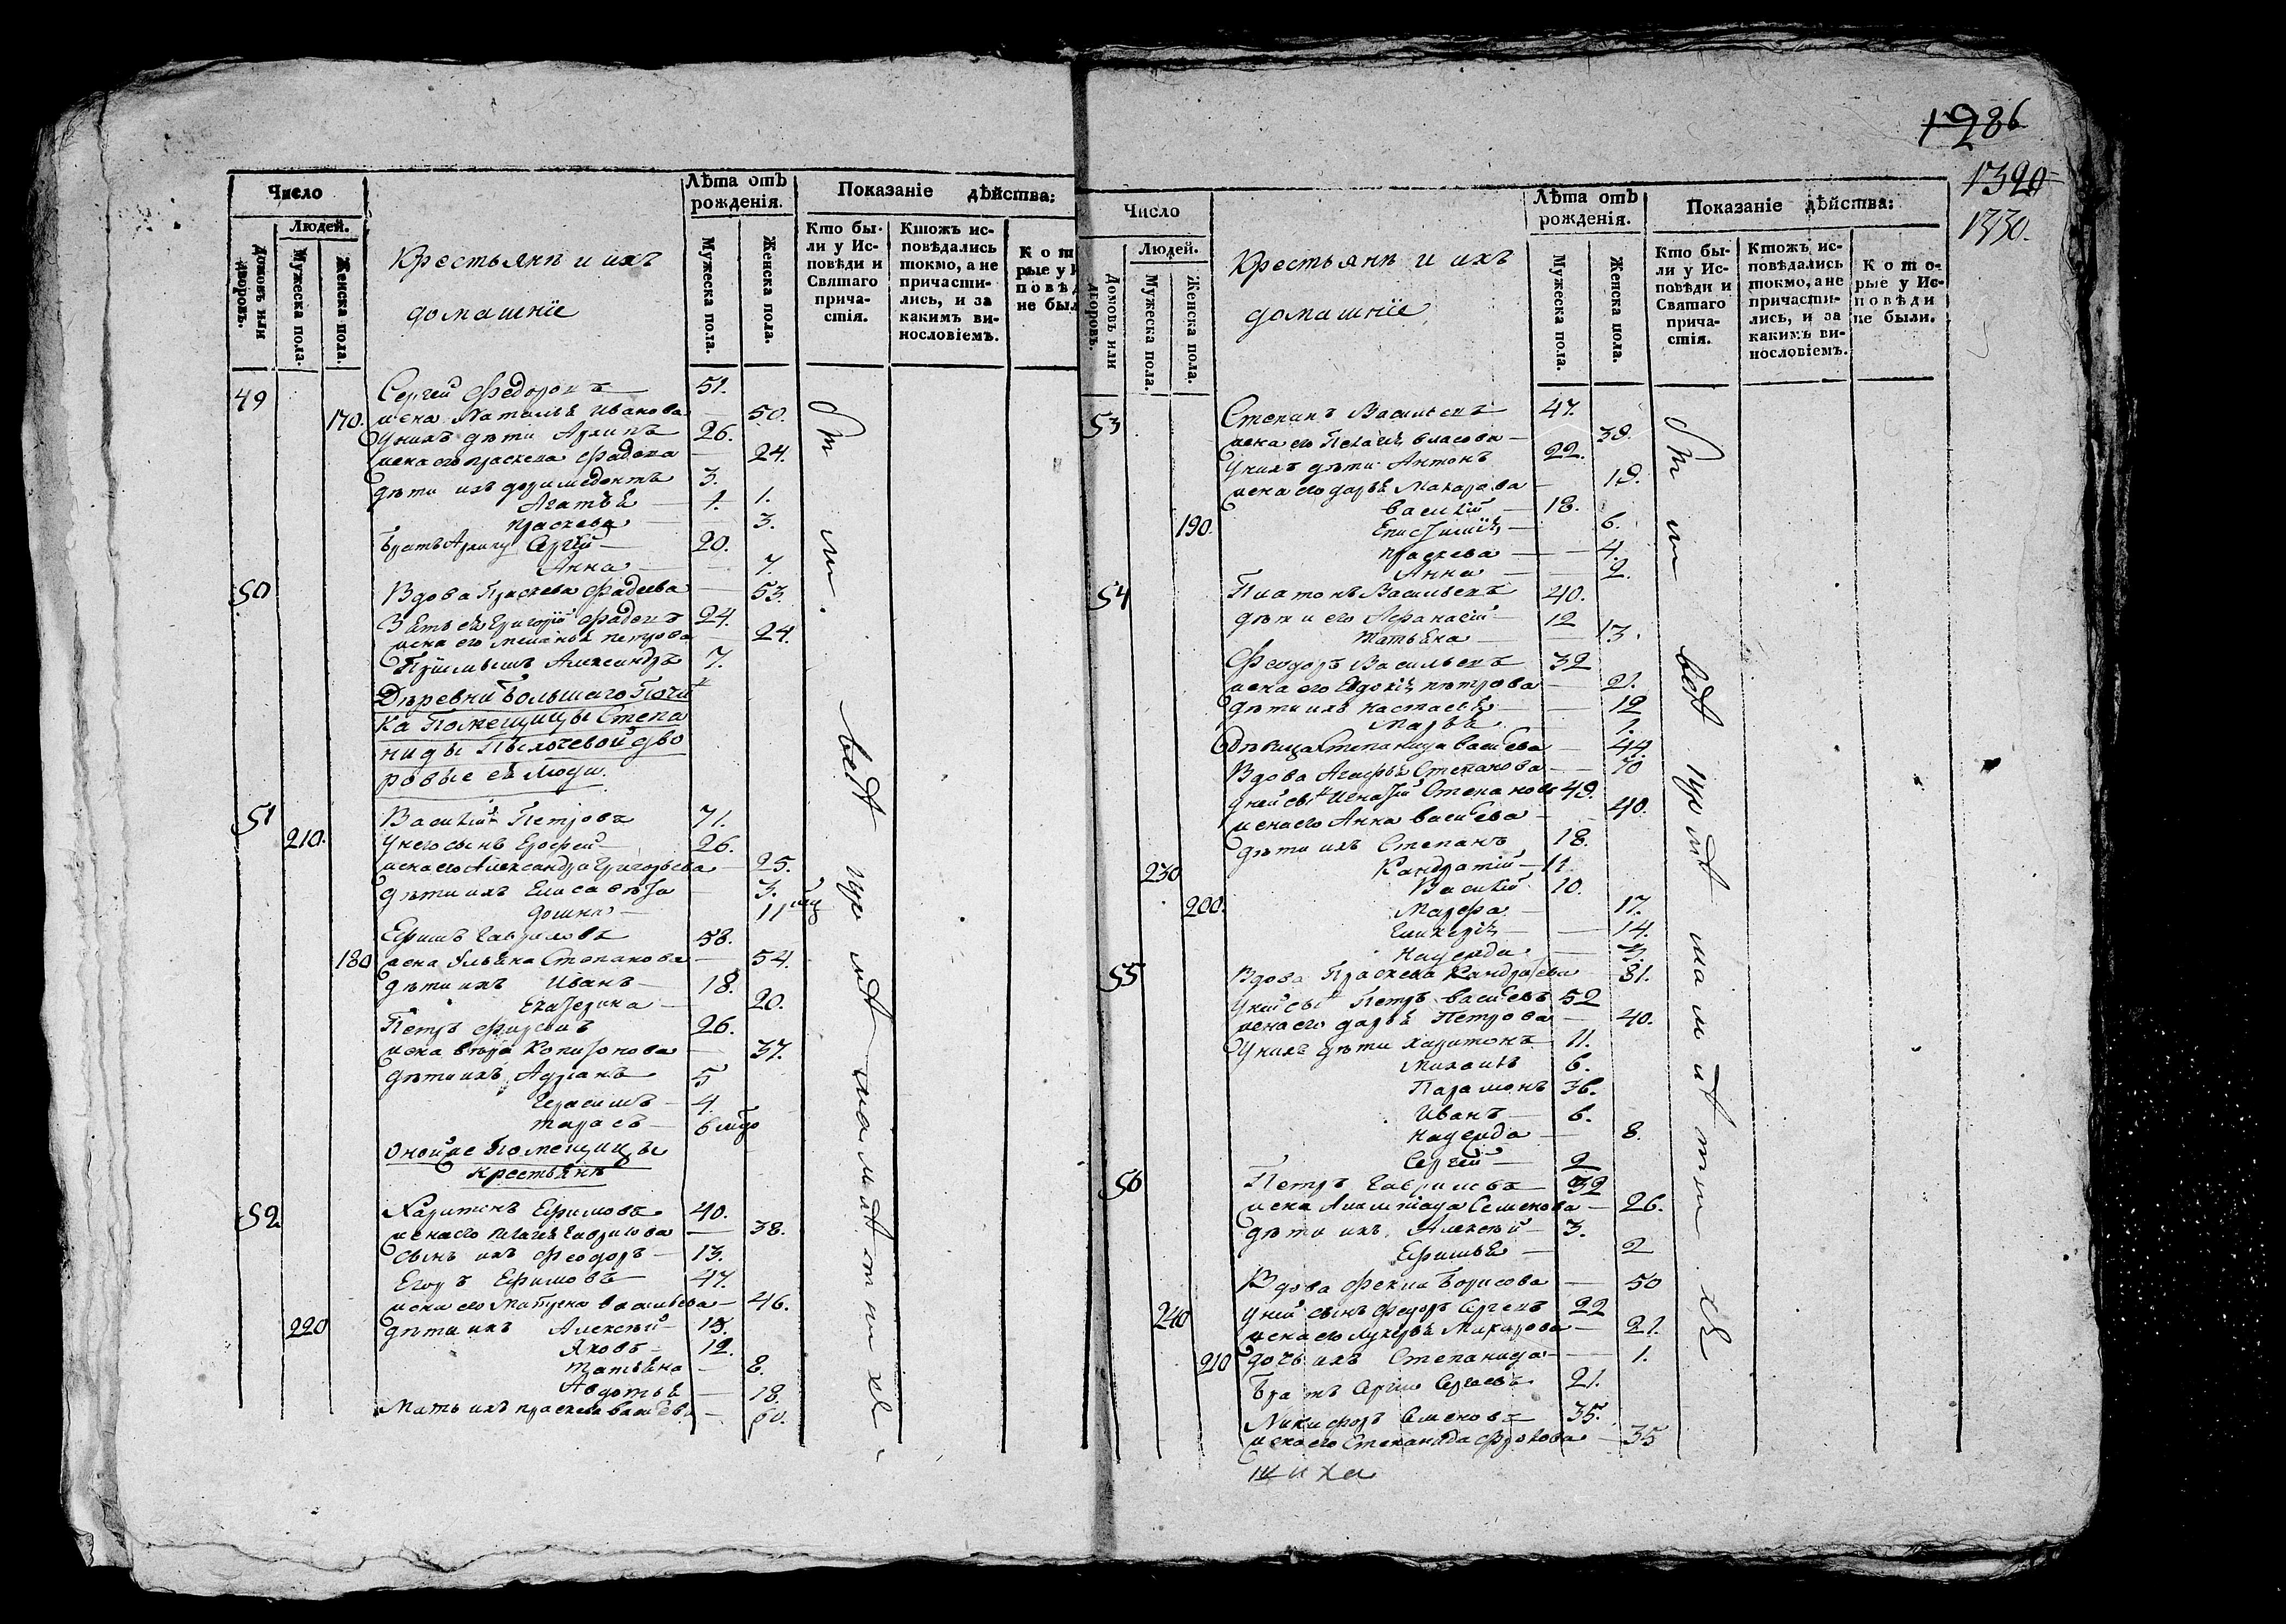 1286
1320
1330.
Число
Людей.
Домовъ или дворовъ.
Мужеска пола.
Женска пола.
Крестьянѣ и ихъ
домашніе
Лѣта отъ
рожденія.
Мужеска пола.
Женска пола.
Показаніе дѣйства:
Кто бы-
ли у Ис-
повѣди и
Святаго
прича-
стія.
Ктожъ ис-
повѣдались
токмо, а не
причасти-
лись, и за
какимъ ви-
нословіемъ.
Кото
рые у И
повѣд
не был
49 Сергей Федоровъ 51.
170. жена Наталья Иванова 50.
У нихъ дѣти Архипъ 26.
жена его праскева Фадеева 24.
дѣти ихъ доримедонтъ 3.
Агатья 1. 1.
праскева 3.
братъ Архипу Сергій 20.
Анна 7.
50 Вдова Праскева Фадеева 53.
Зять ея Григорій Фадеевъ 24.
жена его меланья петрова 24.
Пріимышъ Александръ 7.
Деревни Большаго Почин
ка Помещицы Степа
ниды Пылаевой дво
ровые ея люди.
51 Василій Петровъ 71.
210. У него сынъ Ерофей 26.
жена его Александра Григорьева 25.
дѣти ихъ Елисавета 3.
домна 11
Ефимъ Гавриловъ 58.
180 жена Ульяна Степанова 54.
дѣти ихъ Иванъ 18.
Екатерина 20.
Петръ Фирсовъ 26.
жена вѣра 37.
дѣти ихъ Адріанъ 5
Герасимъ 4.
тарасъ 6
Оной же Помещицы
крестьянѣ
52 Харитонъ Ефимовъ 40.
жена его пелагея Гаврилова 38.
Сынъ ихъ Феодоръ 13.
Егоръ Ефимовъ 47.
жена его Матрена васильева 46.
220 дѣти ихъ Алексѣй 15.
Яковъ 12.
татьяна 8.
Авдотья 18.
Мать ихъ праскева васильева 60.
От ви
Число
Людей.
Домовъ или дворовъ.
Мужеска пола.
Женска пола.
Крестьянѣ и ихъ
домашніе
Лѣта отъ
рожденія.
Мужеска пола.
Женска пола.
Показаніе дѣйства:
Кто бы-
ли у Ис-
повѣди и
Святаго
прича-
стія.
Ктожъ ис-
повѣдались
токмо, а не
причасти-
лись, и за
какимъ ви-
нословіемъ.
Кото-
рые у Ис-
повѣди
не были.
53 Степанъ Васильевъ 47.
жена его Пелагея власова 38.
У нихъ дѣти Антонъ 22.
жена его дарья Макарова 19.
василій 18.
190. Епистимія 6.
праскева 4.
Анна 2.
54 Платонъ Васильевъ 40.
дѣти его Афанасій 12
татьяна 13.
Феодоръ Васильевъ 32
жена его Евдокія петрова 21.
дѣти ихъ настасья 12
Марья 1.
Дѣвица Степанида васильева 44.
Вдова Агафья Степанова 70
У ней сынъ Игнатій Степановъ 49.
жена его Анна васильева 40.
дѣти ихъ Степанъ 18.
230 Кандратій 11.
Василій 10.
200. Марфа 17.
Гликерія 14.
надежда 3.
55 Вдова Праскева Кандратьева 81.
У ней сынъ Петръ васильевъ 52
жена его дарья Петрова 40.
У нихъ дѣти харитонъ 11.
Михаилъ 6.
Парамонъ 36.
Иванъ 6.
надежда 8.
Сергей 2
56 Петръ Гавриловъ 32
жена Семенова 26.
дѣти ихъ Алексѣй 3.
Ефимья 2
Вдова Фекла Борисова 50
240 У ней сынъ Федоръ Сергеевъ 22
жена его лукерья Макарова 21.
210 дочь ихъ Степанида 1.
братъ Сергей Сергеевъ 21.
Никифоръ Семеновъ 35.
жена его Степанида Фролова 35